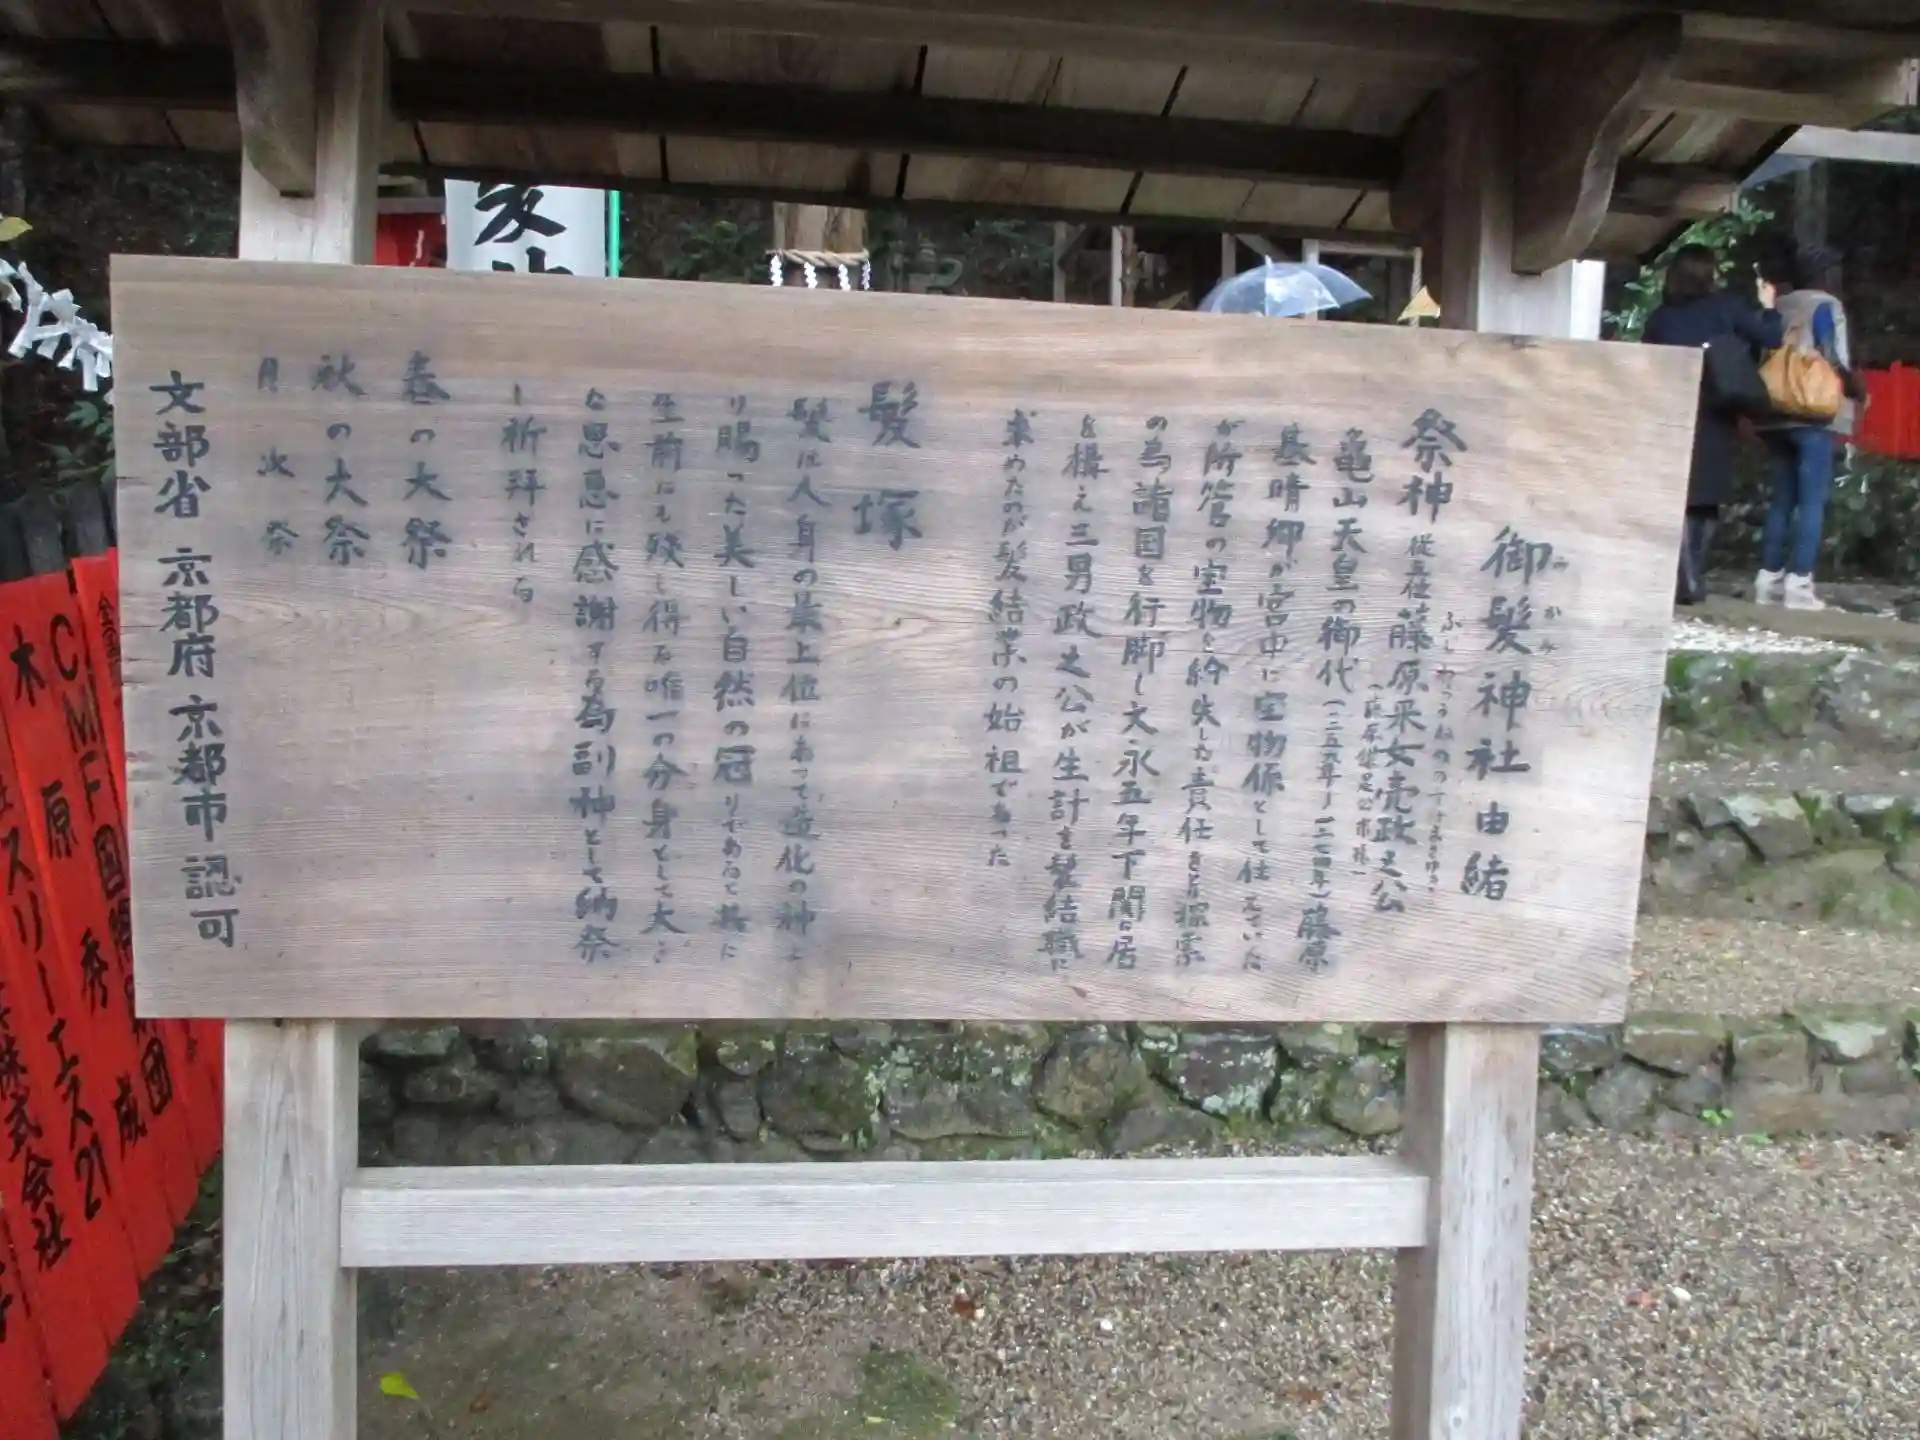 御髪神社由緒
みかみ
祭神 従五位藤原采女亮政之公
ふじわらうねめのすけまさゆき
(藤原鎌足公末裔)
亀山天皇の御代(一二五九年ー一二七四年)藤原
基晴卿が宮中に宝物係として仕えていた
が所管の宝物を紛失した責任をとり探索
の為諸国を行脚し文永五年下関に居
を構え三男政之公が生計を髪結職に
求めたのが髪結業の始祖であった
髪塚
髪は人身の最上位にあって造化の神よ
り賜った美しい自然の冠りであると共に
生前にも残し得る唯一の分身として大き
な恩恵に感謝する為副神として納祭
し祈拝され
春の大祭
秋の大祭
月次祭
文部省 京都府 京都市 認可
木原秀成
CMF国際
スリーエス21
株式会社
団